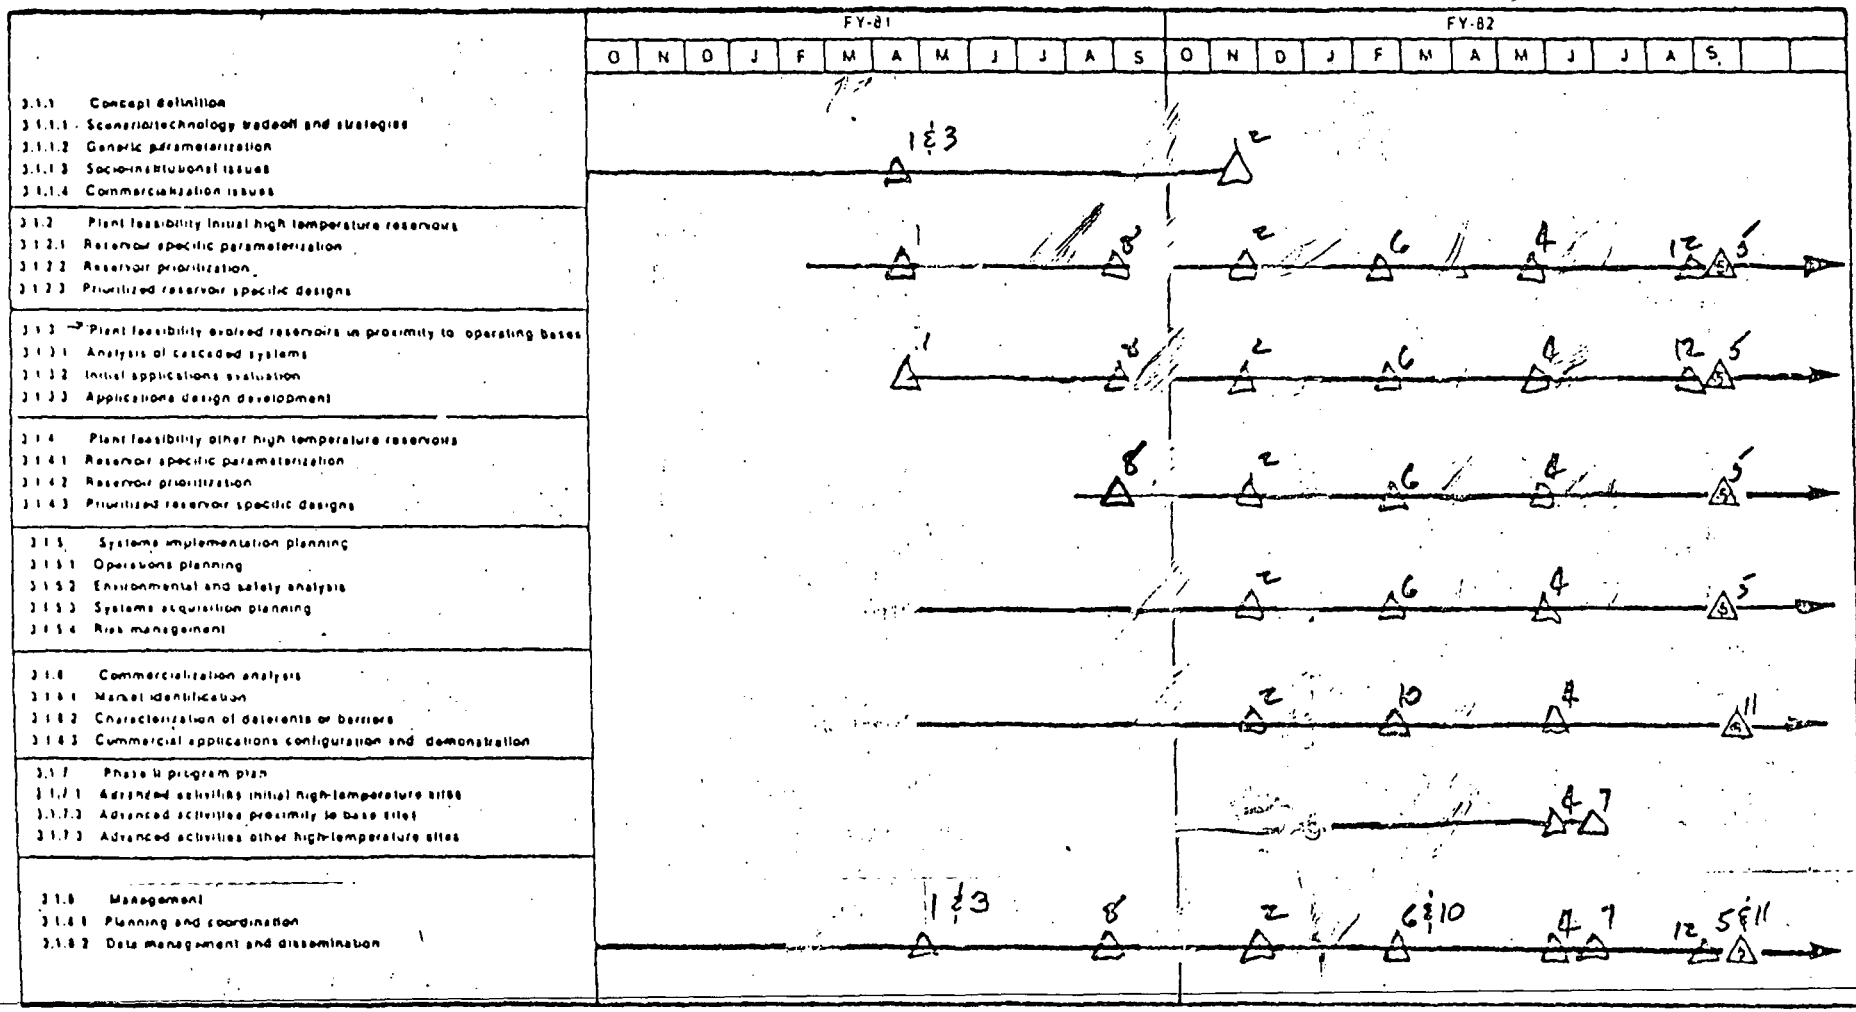 FY-81 FY-82
O N D J F M A M J J A S O N D J F M A M J J A S
3.1.1 Concept definition
3.1.1.1 Scenario/technology tradeoff and strategies
3.1.1.2 Generic parameterization
3.1.1.3 Socio-institutional issues
3.1.1.4 Commercialization issues
1 & 3 2
3.1.2 Plant feasibility initial high temperature reservoirs
3.1.2.1 Reservoir specific parameterization
3.1.2.2 Reservoir prioritization
3.1.2.3 Prioritized reservoir specific designs
1 8 2 6 4 12 5 5
3.1.3 Plant feasibility evolved reservoirs in proximity to operating bases
3.1.3.1 Analysis of cascaded systems
3.1.3.2 Initial applications evaluation
3.1.3.3 Applications design development
1 8 2 6 4 12 5 5
3.1.4 Plant feasibility other high temperature reservoirs
3.1.4.1 Reservoir specific parameterization
3.1.4.2 Reservoir prioritization
3.1.4.3 Prioritized reservoir specific designs
8 2 6 4 5 5
3.1.5 Systems implementation planning
3.1.5.1 Operations planning
3.1.5.2 Environmental and safety analysis
3.1.5.3 Systems acquisition planning
3.1.5.4 Risk management
2 6 4 5
3.1.6 Commercialization analysis
3.1.6.1 Market identification
3.1.6.2 Characterization of deterents or barriers
3.1.4.3 Commercial applications configuration and demonstration
2 10 4 11
3.1.7 Phase II program plan
3.1.7.1 Advanced activities initial high-temperature sites
3.1.7.2 Advanced activities proximity to base sites
3.1.7.3 Advanced activities other high-temperature sites
4 7
3.1.8 Management
3.1.8.1 Planning and coordination
3.1.8.2 Data management and dissemination
1 & 3 8 2 6 & 10 4 7 12 5 & 11